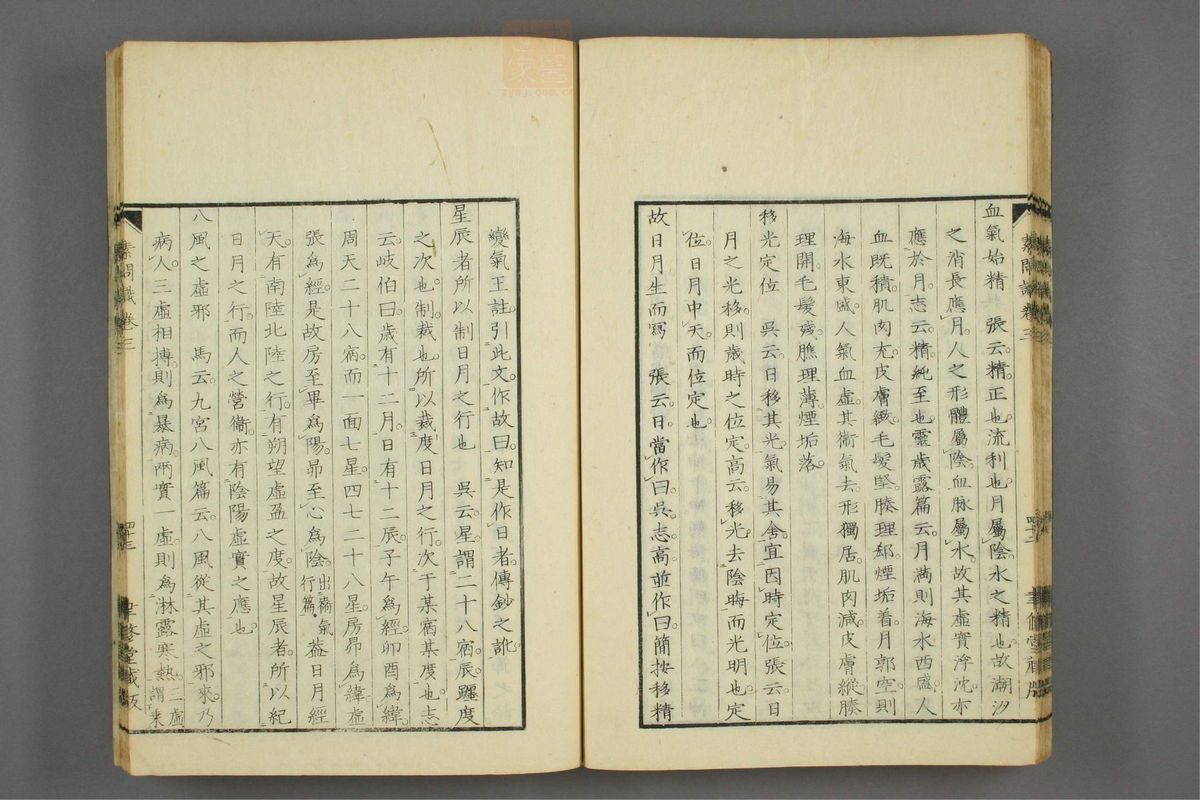 血氣始精　張云。精正也。流利也。月屬陰。水之精也。故潮汐
之消長應月。人之形體屬陰。血脉屬水。故其虛實浮沈。亦
應於月。志云。精純至也。靈歲露篇云。月滿則海水西盛。人
血既積。肌肉充。皮膚緻。毛髮堅。腠理郄。煙垢着。月郭空。則
海水東盛。人氣血虛。其衛氣去。形獨居。肌肉減。皮膚縱。腠
理開。毛髮殘。膲理薄。煙垢落。
移光定位　吳云。日移其光。氣易其舍。宜因時定位。張云。日
月之光移。則歲時之位定。高云。移光。去陰晦而光明也。定
位。日月中天。而位定也。
故日月生而寫　張云。日當作曰。吳志高並作曰。簡按移精
變氣王註。引此文。作故曰。知是作日者。傳鈔之訛。
星辰者所以制日月之行也　吳云。星。謂二十八宿。辰。躔度
之次也。制。裁也。所以裁度日月之行。次于某宿某度也。志
云。岐伯曰。歲有十二月。日有十二辰。子午為經。卯酉為緯。
周天二十八宿。而一面七星。四七二十八星。房昴為緯。虛
張為經。是故房至畢為陽。昴至心為陰。出衛氣行篇。蓋日月經
天。有南陸北陸之行。有朔望虛盈之度。故星辰者。所以紀
日月之行。而人之營衛。亦有陰陽虛實之應也。
八風之虛邪　馬云。九宮八風篇云。八風從其虛之邪來。乃
病人。三虛相搏。則為暴病。兩實一虛。則為淋露寒熱。三虛謂來
素問識卷三
四十三
聿修堂藏版